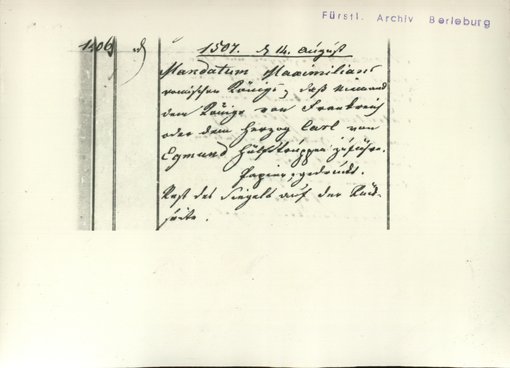 Fürstl. Archiv Berleburg
1506
1507. d 14. August
Mandatum Maximilians
romischen Königs, daß Niemand
dem Könige von Frankreich
oder dem Herzog Carl von
Egmund Hülfstruppen zuführe.
Papier, gedruckt.
Rest des Siegels auf der Rück-
seite.